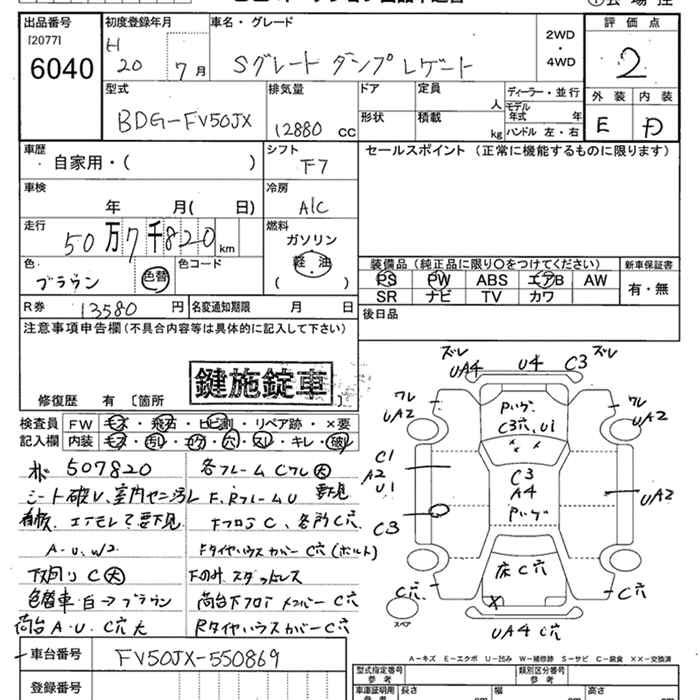 出品番号
[2077]
6040
初度登録年月
H
20 7月
車名・グレード
Sグレート ダンプ Lゲート
2WD
・
4WD
評価点
2
外装 内装
E D
型式
BDG-FV50JX
排気量
12880 cc
ドア
形状
定員
人
積載
kg
ディーラー・並行
モデル年式 年
ハンドル 左・右
車歴
・自家用・( )
シフト
F7
セールスポイント (正常に機能するものに限ります)
車検
年 月( 日)
冷房
A/C
走行
50万7千820km
燃料
ガソリン
軽油
( )
色
ブラウン
色替
色コード
装備品 (純正品に限り○をつけてください)
PS PW ABS エアB AW
SR ナビ TV カワ
新車保証書
有・無
R券 13580 円
名変通知期限 月 日
後日品
注意事項申告欄 (不具合内容等は具体的に記入して下さい)
鍵施錠車
修復歴 有 〔箇所 〕
検査員
記入欄
FW キズ・飛石・ヒビ割・リペア跡・×要
内装 キズ・汚レ・コゲ・穴・スレ・キレ・破レ
507820
シート破レ、室内センヨゴレ
エアモレて要下見
A・U、W2
下回り C大
色替車・白→ブラウン
荷台 A・U・C穴大
各フレーム Cクレ大
F、Rフレーム U 要下見
Fフロア C、各所 C穴
Fタイヤハウスカバー C穴 (ボルト)
Fのみスタッドレス
荷台下フロアメンバー C穴
Rタイヤハウスカバー C穴
ズレ
UA4
U4
C3
ズレ
ワレ
UA2
Pいげ
C3穴、U1
ワレ
UA2
C1
A2
U1
C3
A4
Pいげ
UA2
C3
床C穴
X
C穴
C穴
スペア
UA4 C穴
A-キズ E-エクボ U-凹み W-補修跡 S-サビ C-腐食 XX-交換済
車台番号
FV50JX-550869
登録番号
型式指定番号
参考
類別区分番号
参考
車庫証明用
参考
長さ
幅
高さ